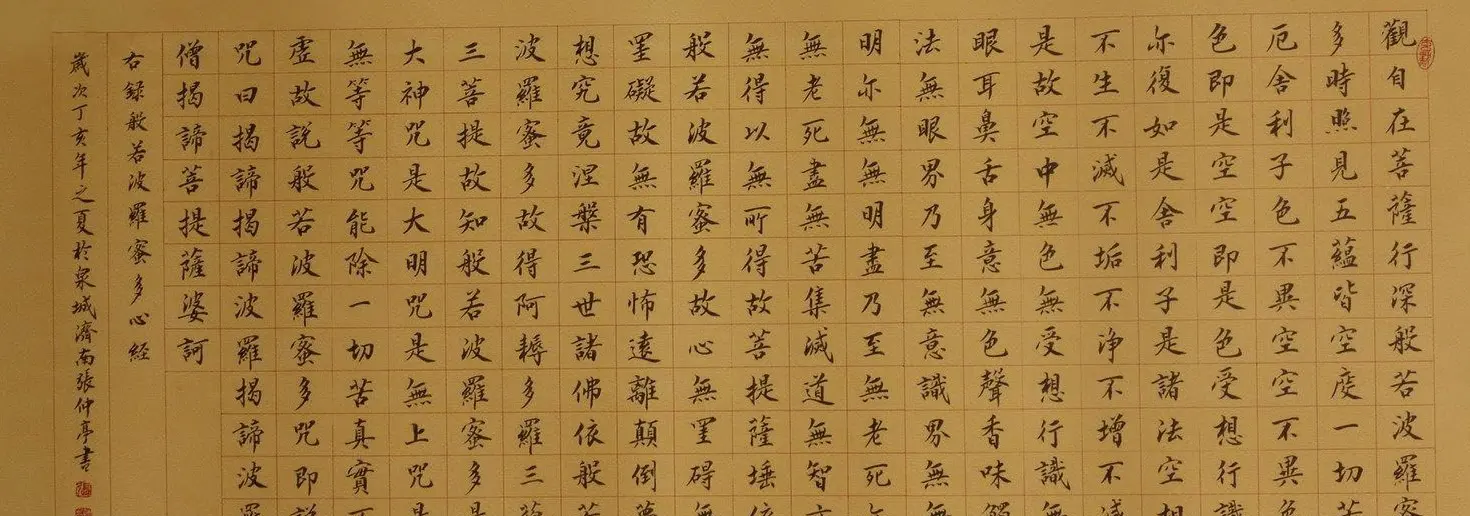 觀自在菩薩行深般若波羅蜜
多時照見五蘊皆空度一切苦
厄舍利子色不異空空不異色
色即是空空即是色受想行識
亦復如是舍利子是諸法空相
不生不滅不垢不净不增不減
是故空中無色無受想行識無
眼耳鼻舌身意無色聲香味觸
法無眼界乃至無意識界無無
明亦無無明盡乃至無老死亦
無老死盡無苦集滅道無智亦
無得以無所得故菩提薩埵依
般若波羅蜜多故心無罣碍無
罣礙故無有恐怖遠離顛倒夢
想究竟涅槃三世諸佛依般若
波羅蜜多故得阿耨多羅三藐
三菩提故知般若波羅蜜多是
大神咒是大明咒是無上咒是
無等等咒能除一切苦真實不
虛故說般若波羅蜜多咒即說
咒曰揭諦揭諦波羅揭諦波羅
僧揭諦菩提薩婆訶
右錄般若波羅蜜多心経
歲次丁亥年之夏於泉城濟南張仲亭書